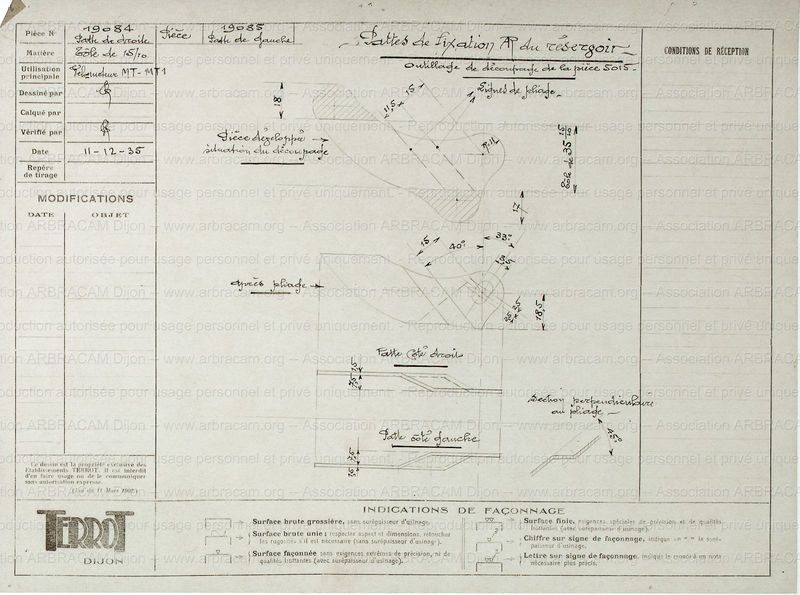 Pièce N° 19084 Pièce 19085
Patte de droite Patte de gauche
Matière Tôle de 15/10
Utilisation
principale Vélomoteur MT-MT1
Dessiné par
Calqué par
Vérifié par
Date 11-12-35
Repère
de tirage
MODIFICATIONS
DATE OBJET
Pattes de fixation AR du réservoir
Outillage de découpage de la pièce 5015
CONDITIONS DE RÉCEPTION
Lignes de pliage
18
11,5
15
Pièce développée
situation du découpage
17
15
40°
33°
13,5
18,5
après pliage
Patte côté droit
7,5 1,5
Patte côté gauche
Section perpendiculaire
au pliage
45°
Ce dessin est la propriété exclusive des
Etablissements TERROT. Il est interdit
d'en faire usage ou de le communiquer
sans autorisation expresse.
(Loi du 11 Mars 1902)
TERROT
DIJON
INDICATIONS DE FAÇONNAGE
Surface brute grossière, sans surépaisseur d'usinage.
Surface brute unie; respecter aspect et dimensions, retoucher
les rugosités s'il est nécessaire (sans surépaisseur d'usinage).
Surface façonnée sans exigences extrêmes de précision, ni de
qualités frottantes (avec surépaisseur d'usinage).
Surface finie, exigences spéciales de précision et de qualités
frottantes (avec surépaisseur d'usinage).
Chiffre sur signe de façonnage, indique en m/m la surépaisseur d'usinage.
Lettre sur signe de façonnage, indique le renvoi à une note
nécessaire plus précis.
Association ARBRACAM Dijon – www.arbracam.org
Reproduction autorisée pour usage personnel et privé uniquement.